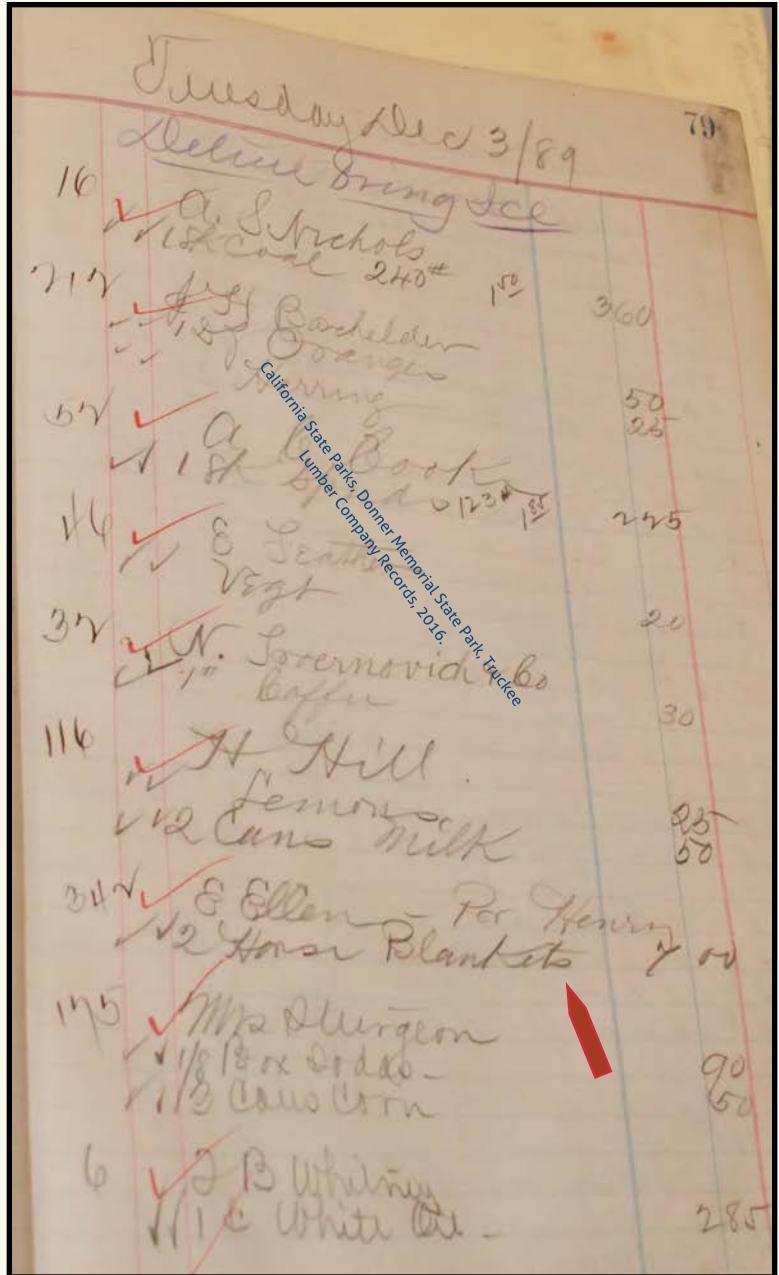 Tuesday Dec 3/89
79
bring Ice
16 A. S. Nichols
1 Sk Coal 240# 1 50 360
212 Bachelder
1 Oranges 50
Herring 25
52 A Book
1 Sk 123# 1 85 225
46 E
Vegt 20
32 N. & Co
Coffee 30
116 H Hill
Lemons 25
2 Cans Milk 50
342 E Ellen - Per Henry
2 Horse Blankets 7 00
175 Mrs Sturgeon
1/8 Box Sodas - 90
3 Cans Corn 50
6 J B Whitney
1 C White Oil - 285
California State Parks, Donner Memorial State Park, Truckee
Lumber Company Records, 2016.